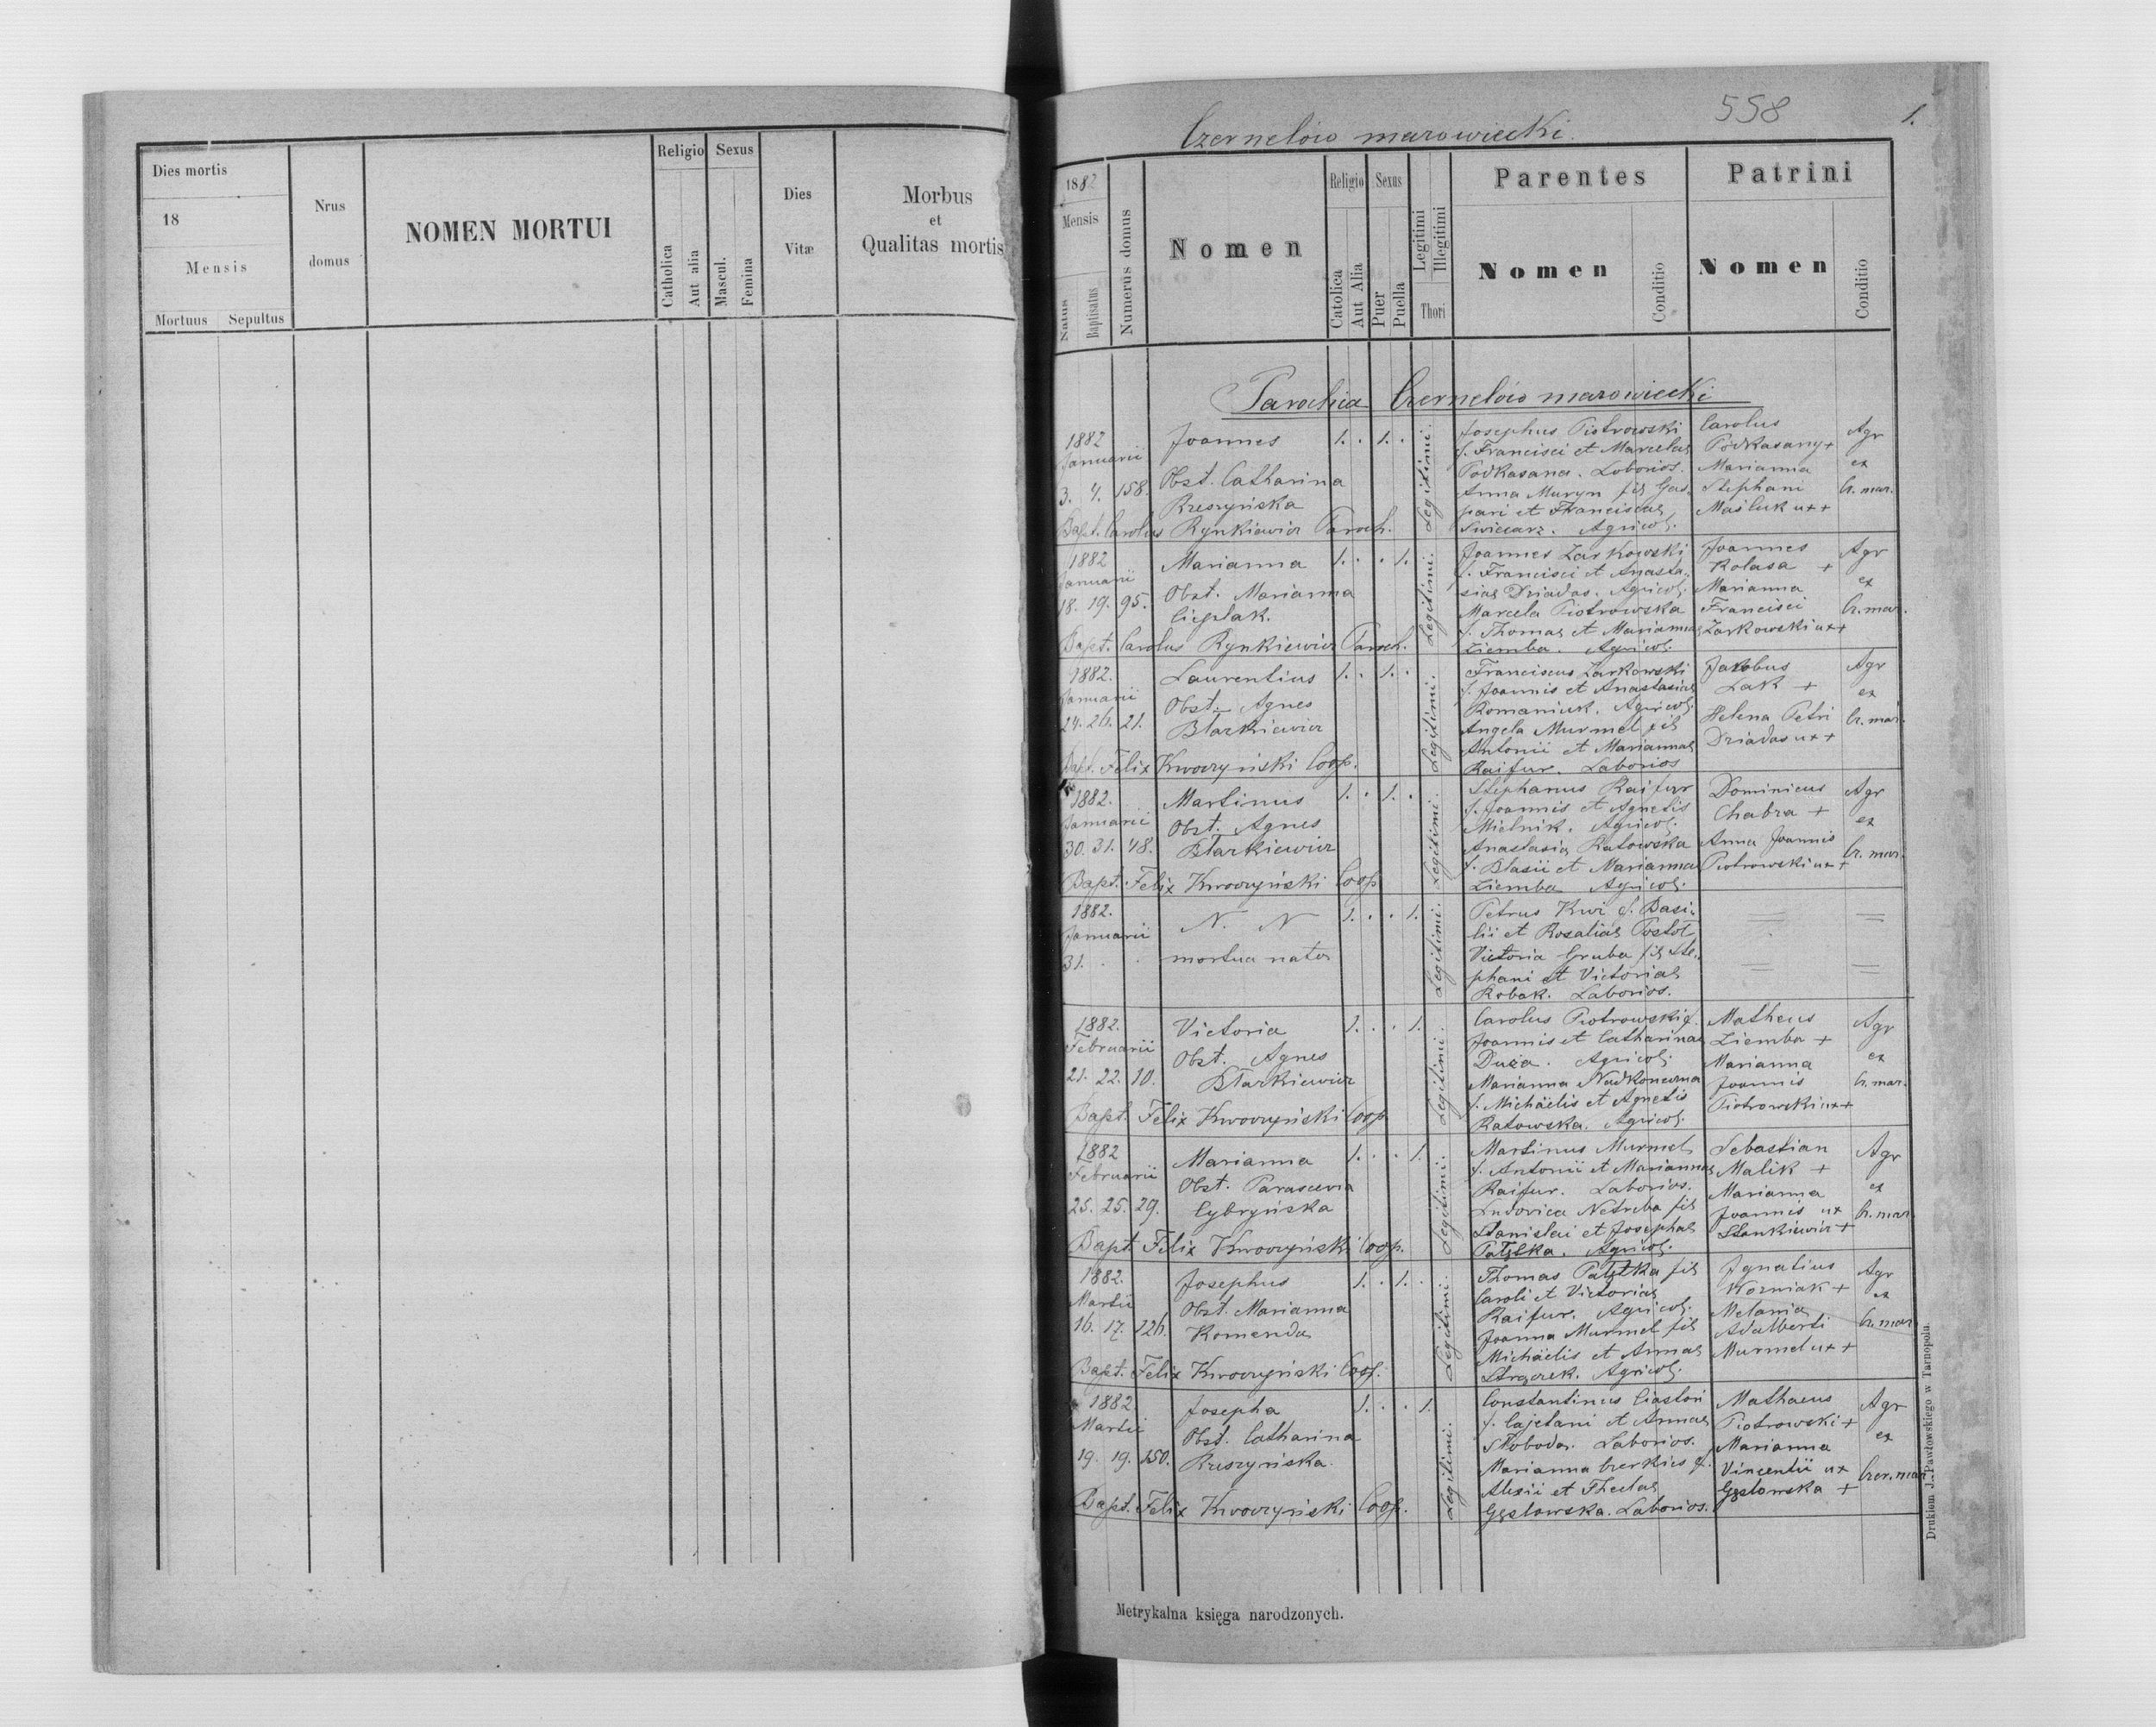 Dies mortis
18
Mensis
Mortuus Sepultus
Nrus
domus
NOMEN MORTUI
Religio Sexus
Catholica
Aut alia
Mascul.
Femina
Dies
Vitæ
Morbus
et
Qualitas mortis
558
1.
Czernelów mazowiecki.
1882
Mensis
Natus
Baptisatus
Numerus domus
Nomen
Religio Sexus
Catolica
Aut Alia
Puer
Puella
Legitimi
Illegitimi
Thori
Parentes
Nomen
Conditio
Patrini
Nomen
Conditio
Parochia Czernelów mazowiecki
1882
Januarii
3. 4. 158.
Joannes
Obst. Catharina
Rzeszyńska
Bapt. Carolus Rynkiewicz Paroch.
1. . 1. .
Legitimi.
Josephus Piotrowski
f. Francisci et Marcelae
Podkasana. Laborios.
Anna Muryn fil. Gas-
pari et Franciscae
Swiecarz. Agricol.
Carolus
Podkasany +
Marianna
Stephani
Maśluk ux +
Agr
ex
Cz. maz.
1882
Januarii
18. 19. 95.
Marianna
Obst. Marianna
Cieplak.
Bapt. Carolus Rynkiewicz Paroch.
1. . . 1.
Legitimi.
Joannes Zarkowski
f. Francisci et Anasta-
siae Dziadas. Agricol.
Marcela Piotrowska
f. Thomae et Mariannae
Ziemba. Agricol.
Joannes
Kolasa +
Marianna
Francisci
Zarkowski ux +
Agr
ex
Cz. maz.
1882.
Januarii
24. 26. 21.
Laurentius
Obst. Agnes
Błarkiewicz
Bapt. Felix Kwoczyński Coop.
1. . 1. .
Legitimi.
Franciscus Zarkowski
f. Joannis et Anastasiae
Romaniuk. Agricol.
Angela Murmel fil
Antonii et Mariannae
Raifur. Laborios
Jakobus
Lak +
Helena Petri
Dziadas ux +
Agr
ex
Cz. maz.
1882.
Januarii
30. 31. 48.
Martinus
Obst. Agnes
Błarkiewicz
Bapt. Felix Kwoczyński Coop
1. . 1. .
Legitimi.
Stephanus Raifur
f. Joannis et Agnetis
Mielnik. Agricol.
Anastasia Ratowska
f. Blasii et Mariannae
Ziemba Agricol.
Dominicus
Chabra +
Anna Joannis
Piotrowski ux +
Agr
ex
Cz. maz.
1882.
Januarii
31. . .
N. N
mortua nata
1. . . 1.
Legitimi.
Petrus Kwi f. Basi-
lii et Rosaliae Postoł
Victoria Gruba fil Ste-
phani et Victoriae
Robak. Laborios.
1882.
Februarii
21. 22. 10.
Victoria
Obst. Agnes
Błarkiewicz
Bapt. Felix Kwoczyński Coop
1. . . 1.
Legitimi.
Carolus Piotrowski f.
Joannis et Catharinae
Duża. Agricol.
Marianna
f. Michäelis et Agnetis
Ratowska. Agricol.
Matheus
Ziemba +
Marianna
Joannis
Piotrowski ux +
Agr
ex
Cz. maz.
1882
Februarii
25. 25. 29.
Marianna
Obst. Parascevia
Cybryńska
Bapt Felix Kwoczyński Coop.
1. . . 1.
Legitimi.
Martinus Murmel
f. Antonii et Mariannae
Raifur. Laborios.
Ludovica Netreba fil
Stanislai et Josephae
Patyłka. Agricol.
Sebastian
Malik +
Marianna
Joannis ux
Stankiewicz +
Agr
ex
Cz. maz
1882.
Martii
16. 17. 126.
Josephus
Obst. Marianna
Komenda
Bapt. Felix Kwoczyński Coop.
1. . 1. .
Legitimi.
Thomas Patyłka fil
Caroli et Victoriae
Raifur. Agricol.
Joanna Murmel fil
Michäelis et Annae
Agricol.
Ignatius
Woźniak +
Melania
Adalberti
Murmel ux +
Agr
ex
Cz. maz
1882
Martii
19. 19. 150.
Josepha
Obst. Catharina
Rzeszyńska.
Bapt. Felix Kwoczyński Coop.
1. . . 1.
Legitimi.
Constantinus Ciastoń
f. Cajetani et Annae
Słoboda. Laborios.
Marianna Czerkies f.
Alexii et Theclae
Gęstowska. Laborios.
Mathaeus
Piotrowski +
Marianna
Vincentii ux
Gęstowska +
Agr
ex
Czer. maz
Drukiem J. Pawłowskiego w Tarnopolu.
Metrykalna księga narodzonych.